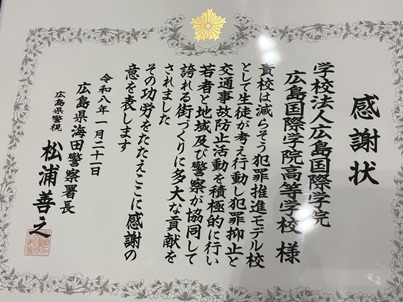 感謝状
学校法人広島国際学院
広島国際学院高等学校 様
貴校は減らそう犯罪推進モデル校
として生徒が考え行動し犯罪抑止と
交通事故防止活動を積極的に行い
若者と地域及び警察が協同して
誇れる街づくりに多大な貢献を
されました
その功労をたたえここに感謝の
意を表します
令和八年一月二十一日
広島県海田警察署長
広島県警視 松浦善之